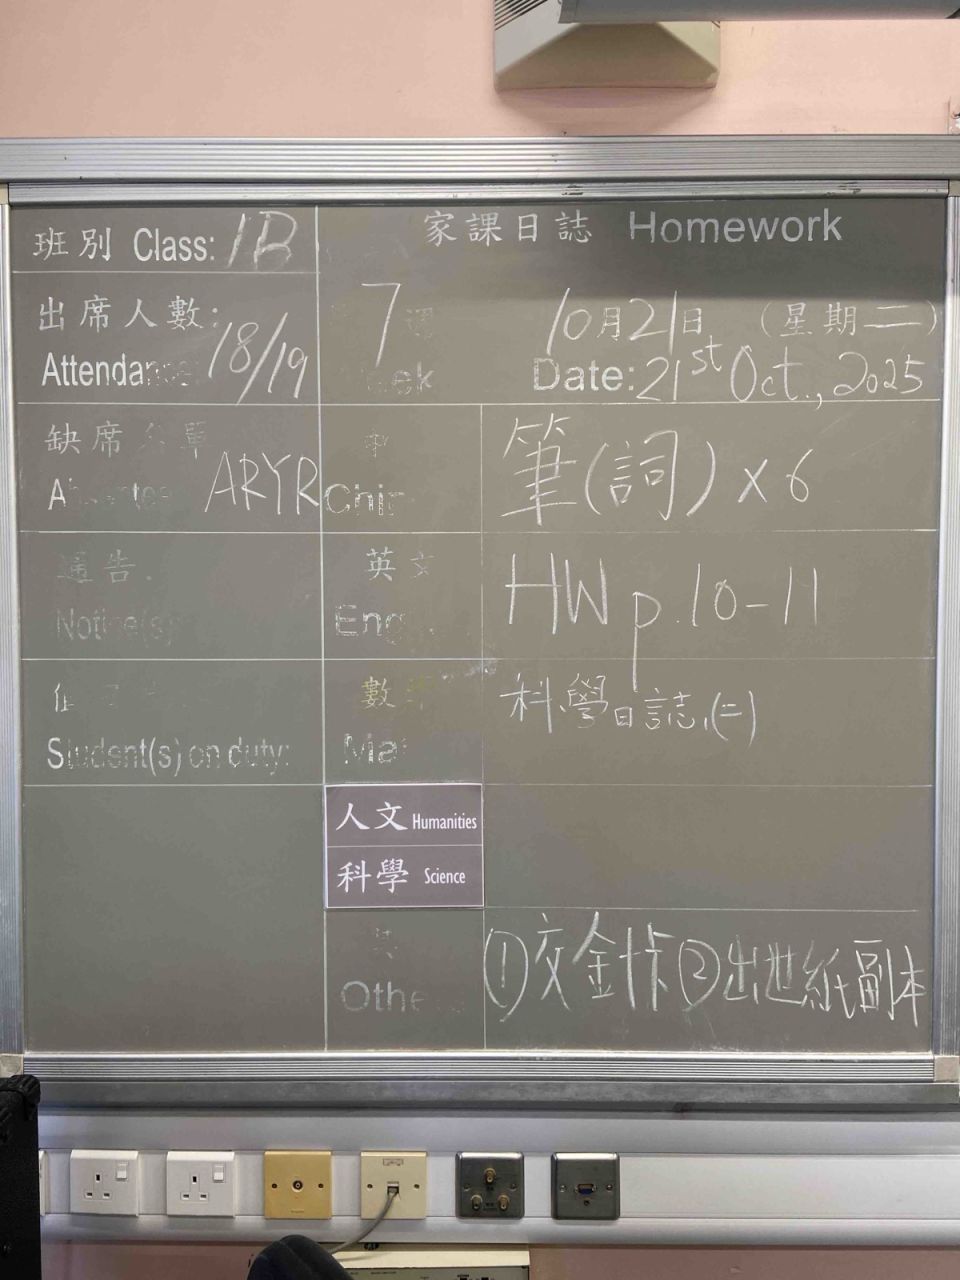 班別 Class: 1B
家課日誌 Homework
出席人數:
Attendance: 18/19
7 週
10月21日 (星期二)
Date: 21st Oct., 2025
缺席名單
Absentee ARYR
中
Chin
筆(詞) x 6
通告
Notice(s)
英文
Eng
HW p.10-11
Student(s) on duty:
數
Ma
科學日誌(二)
人文 Humanities
科學 Science
其
Othe
①交金卡②出世紙副本